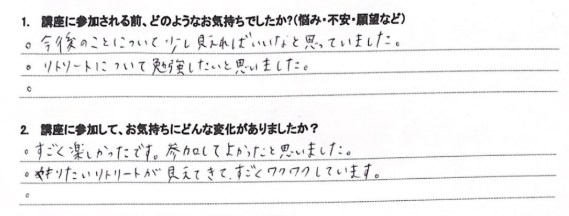 1. 講座に参加される前、どのようなお気持ちでしたか?(悩み・不安・願望など)
。今後のことについて少し見えればいいなと思っていました。
。リトリートについて勉強したいと思いました。
。
2. 講座に参加して、お気持ちにどんな変化がありましたか?
。すごく楽しかったです。参加してよかったと思いました。
。やりたいリトリートが見えてきて、すごくワクワクしています。
。